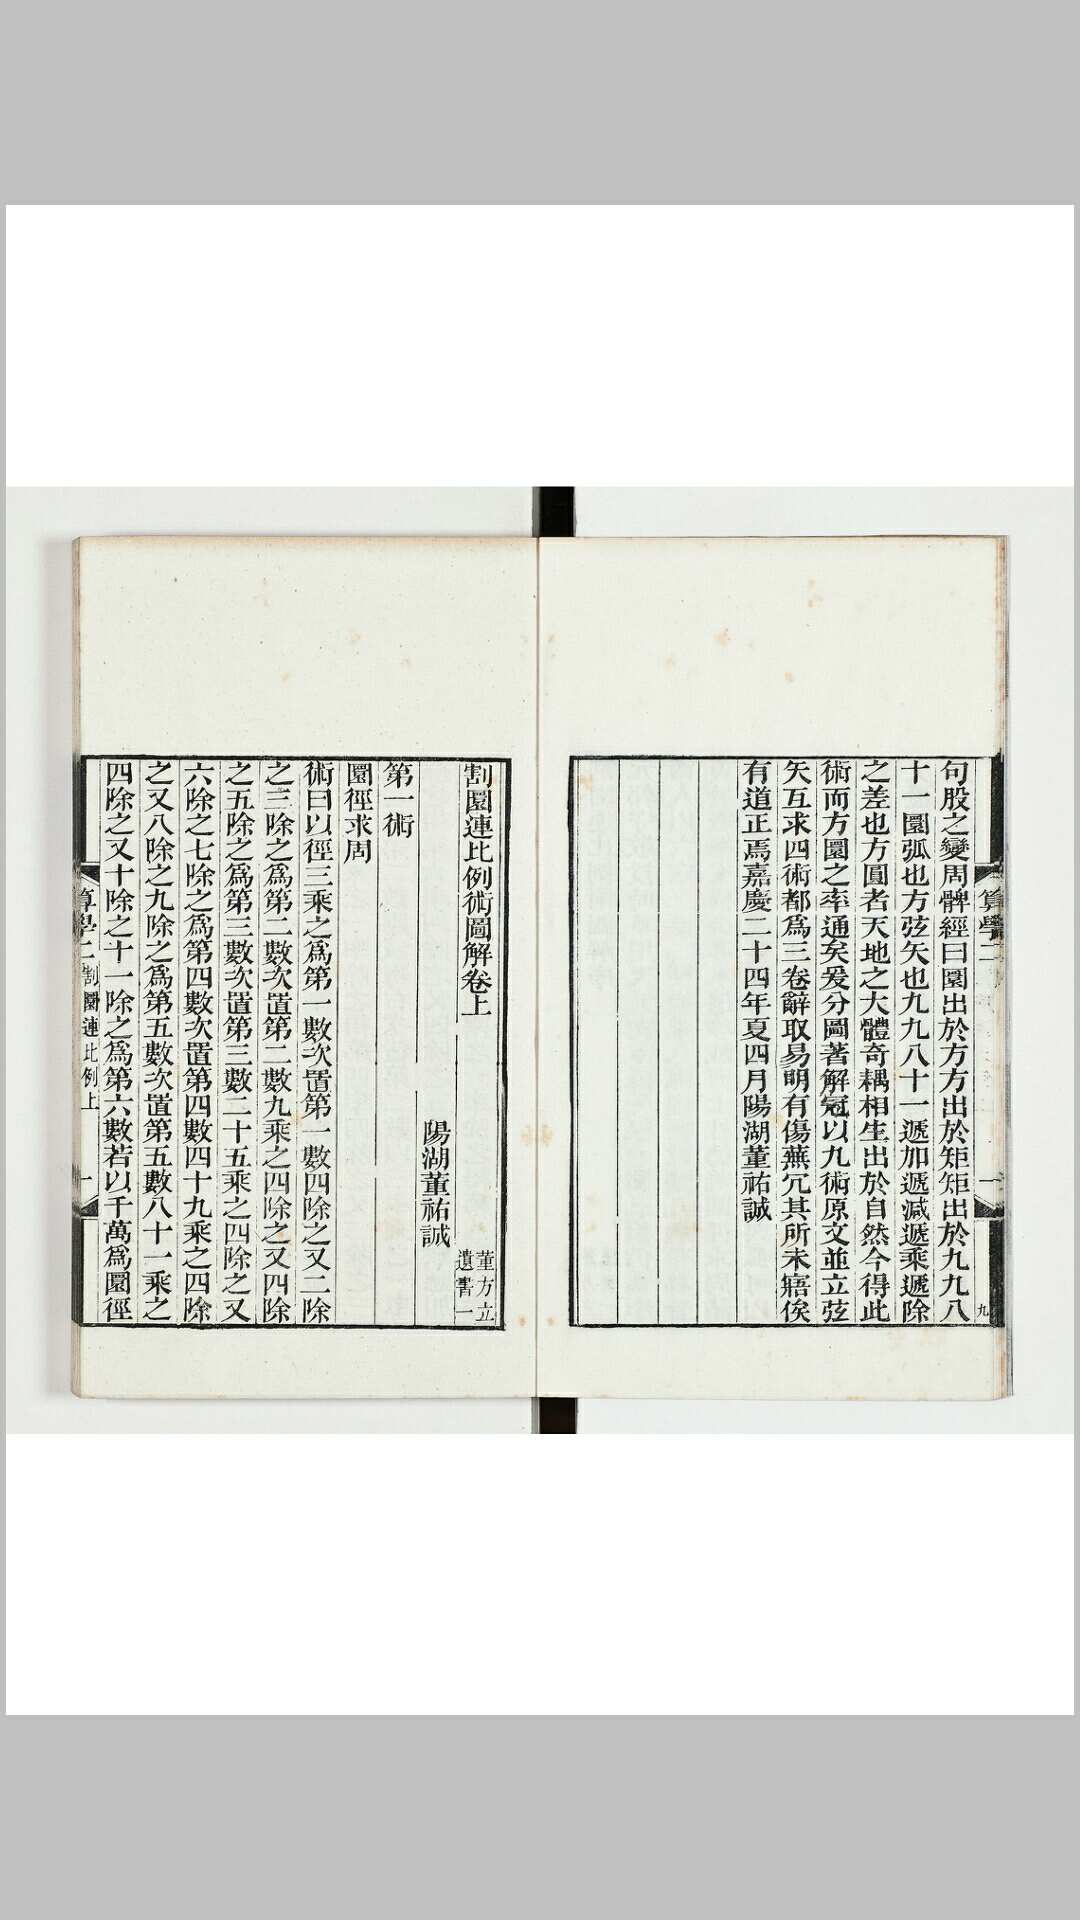 句股之變周髀經曰圜出於方方出於矩矩出於九九八
十一圜弧也方弦矢也九九八十一遞加遞減遞乘遞除
之差也方圓者天地之大體奇耦相生出於自然今得此
術而方圜之率通矣爰分圖著解冠以九術原文並立弦
矢互求四術都為三卷辭取易明有傷蕪冗其所未寤俟
有道正焉嘉慶二十四年夏四月陽湖董祐誠
算學二
一
九
割圜連比例術圖解卷上
董方立
遺書一
陽湖董祐誠
第一術
圜徑求周
術曰以徑三乘之為第一數次置第一數四除之又二除
之三除之為第二數次置第二數九乘之四除之又四除
之五除之為第三數次置第三數二十五乘之四除之又
六除之七除之為第四數次置第四數四十九乘之四除
之又八除之九除之為第五數次置第五數八十一乘之
四除之又十除之十一除之為第六數若以千萬為圜徑
算學二
割圜連比例上
一